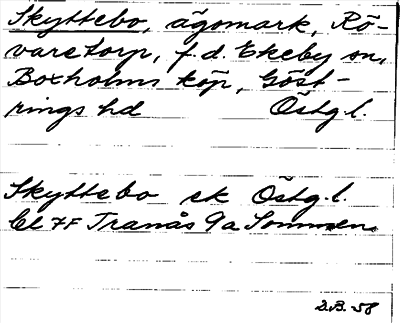 Skyttebo, ägomark, Rö-
varetorp, f.d. Ekeby sn,
Boxholms köp, Göst-
rings hd Östg.l.
Skyttebo ek Östg.l.
Bl 7F Tranås 9a Sommen
D.B. 58